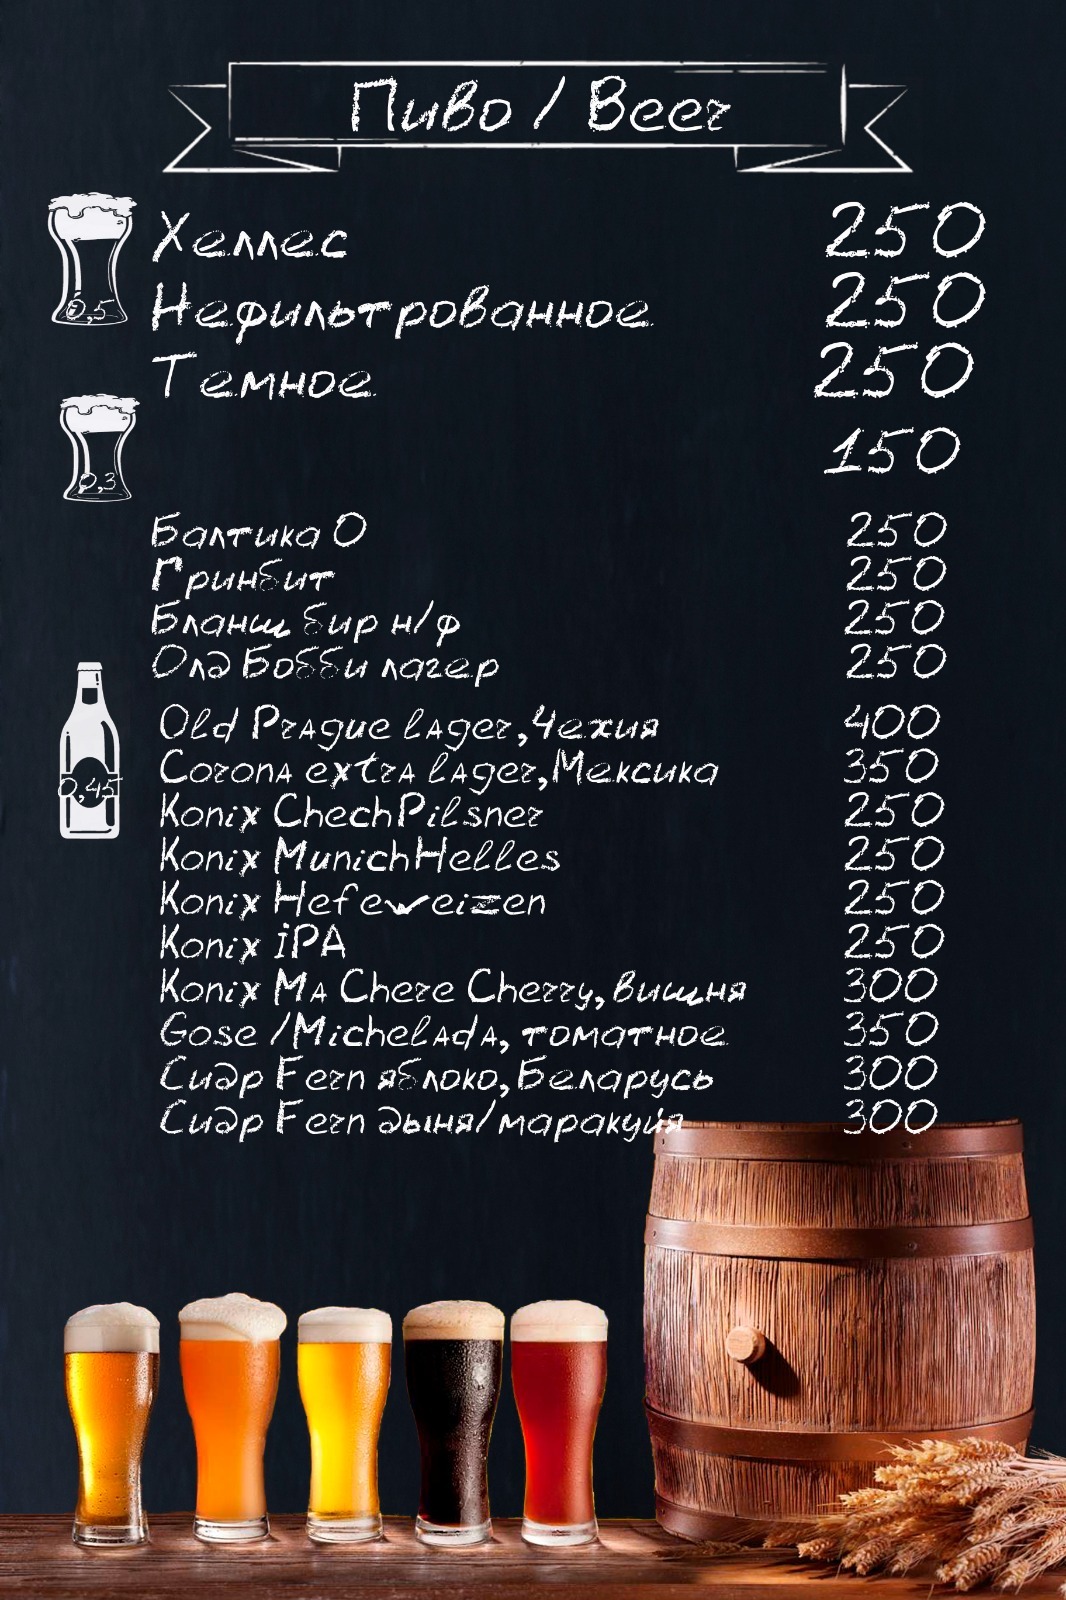 Пиво / Beer
Хеллес 250
0,5
Нефильтрованное 250
Темное 250
0,3 150
Балтика 0 250
Гринбит 250
Бланш бир н/ф 250
Олд Бобби лагер 250
Old Prague lager, Чехия 400
Corona extra lager, Мексика 350
0,45
Konix ChechPilsner 250
Konix MunichHelles 250
Konix Hefeweizen 250
Konix iPA 250
Konix Ma Chere Cherry, вишня 300
Gose /Michelada, томатное 350
Сидр Fern яблоко, Беларусь 300
Сидр Fern дыня/маракуйя 300